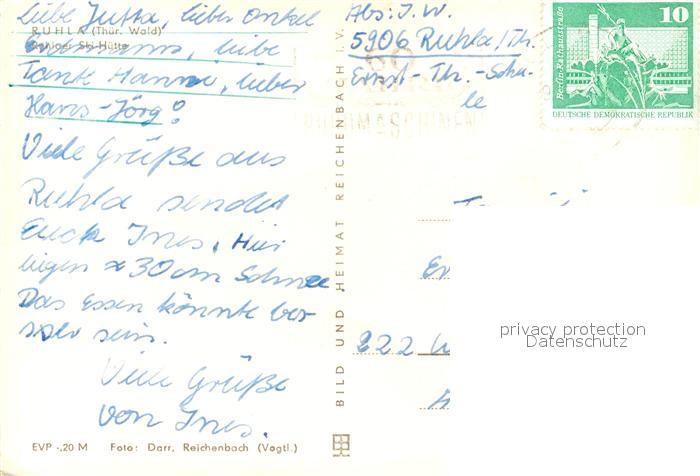 Liebe Jutta, lieber Onkel
RUHLA (Thür. Wald)
Ski-Hütte
liebe
Tante Hanni, lieber
Hans-Jörg!
Viele Grüße aus
Ruhla sendet
Euch Ines. Hier
liegen ≈ 30 cm Schnee
Das Essen könnte bes-
ser sein.
Viele Grüße
von Ines.
EVP -,20 M Foto: Darr, Reichenbach (Vogtl.)
BILD UND HEIMAT REICHENBACH I. V.
Abs: I. W.
5906 Ruhla/Th.
Ernst-Th.-Schu-
le
Berlin-Rathausstraße
10
DEUTSCHE DEMOKRATISCHE REPUBLIK
222
privacy protection
Datenschutz